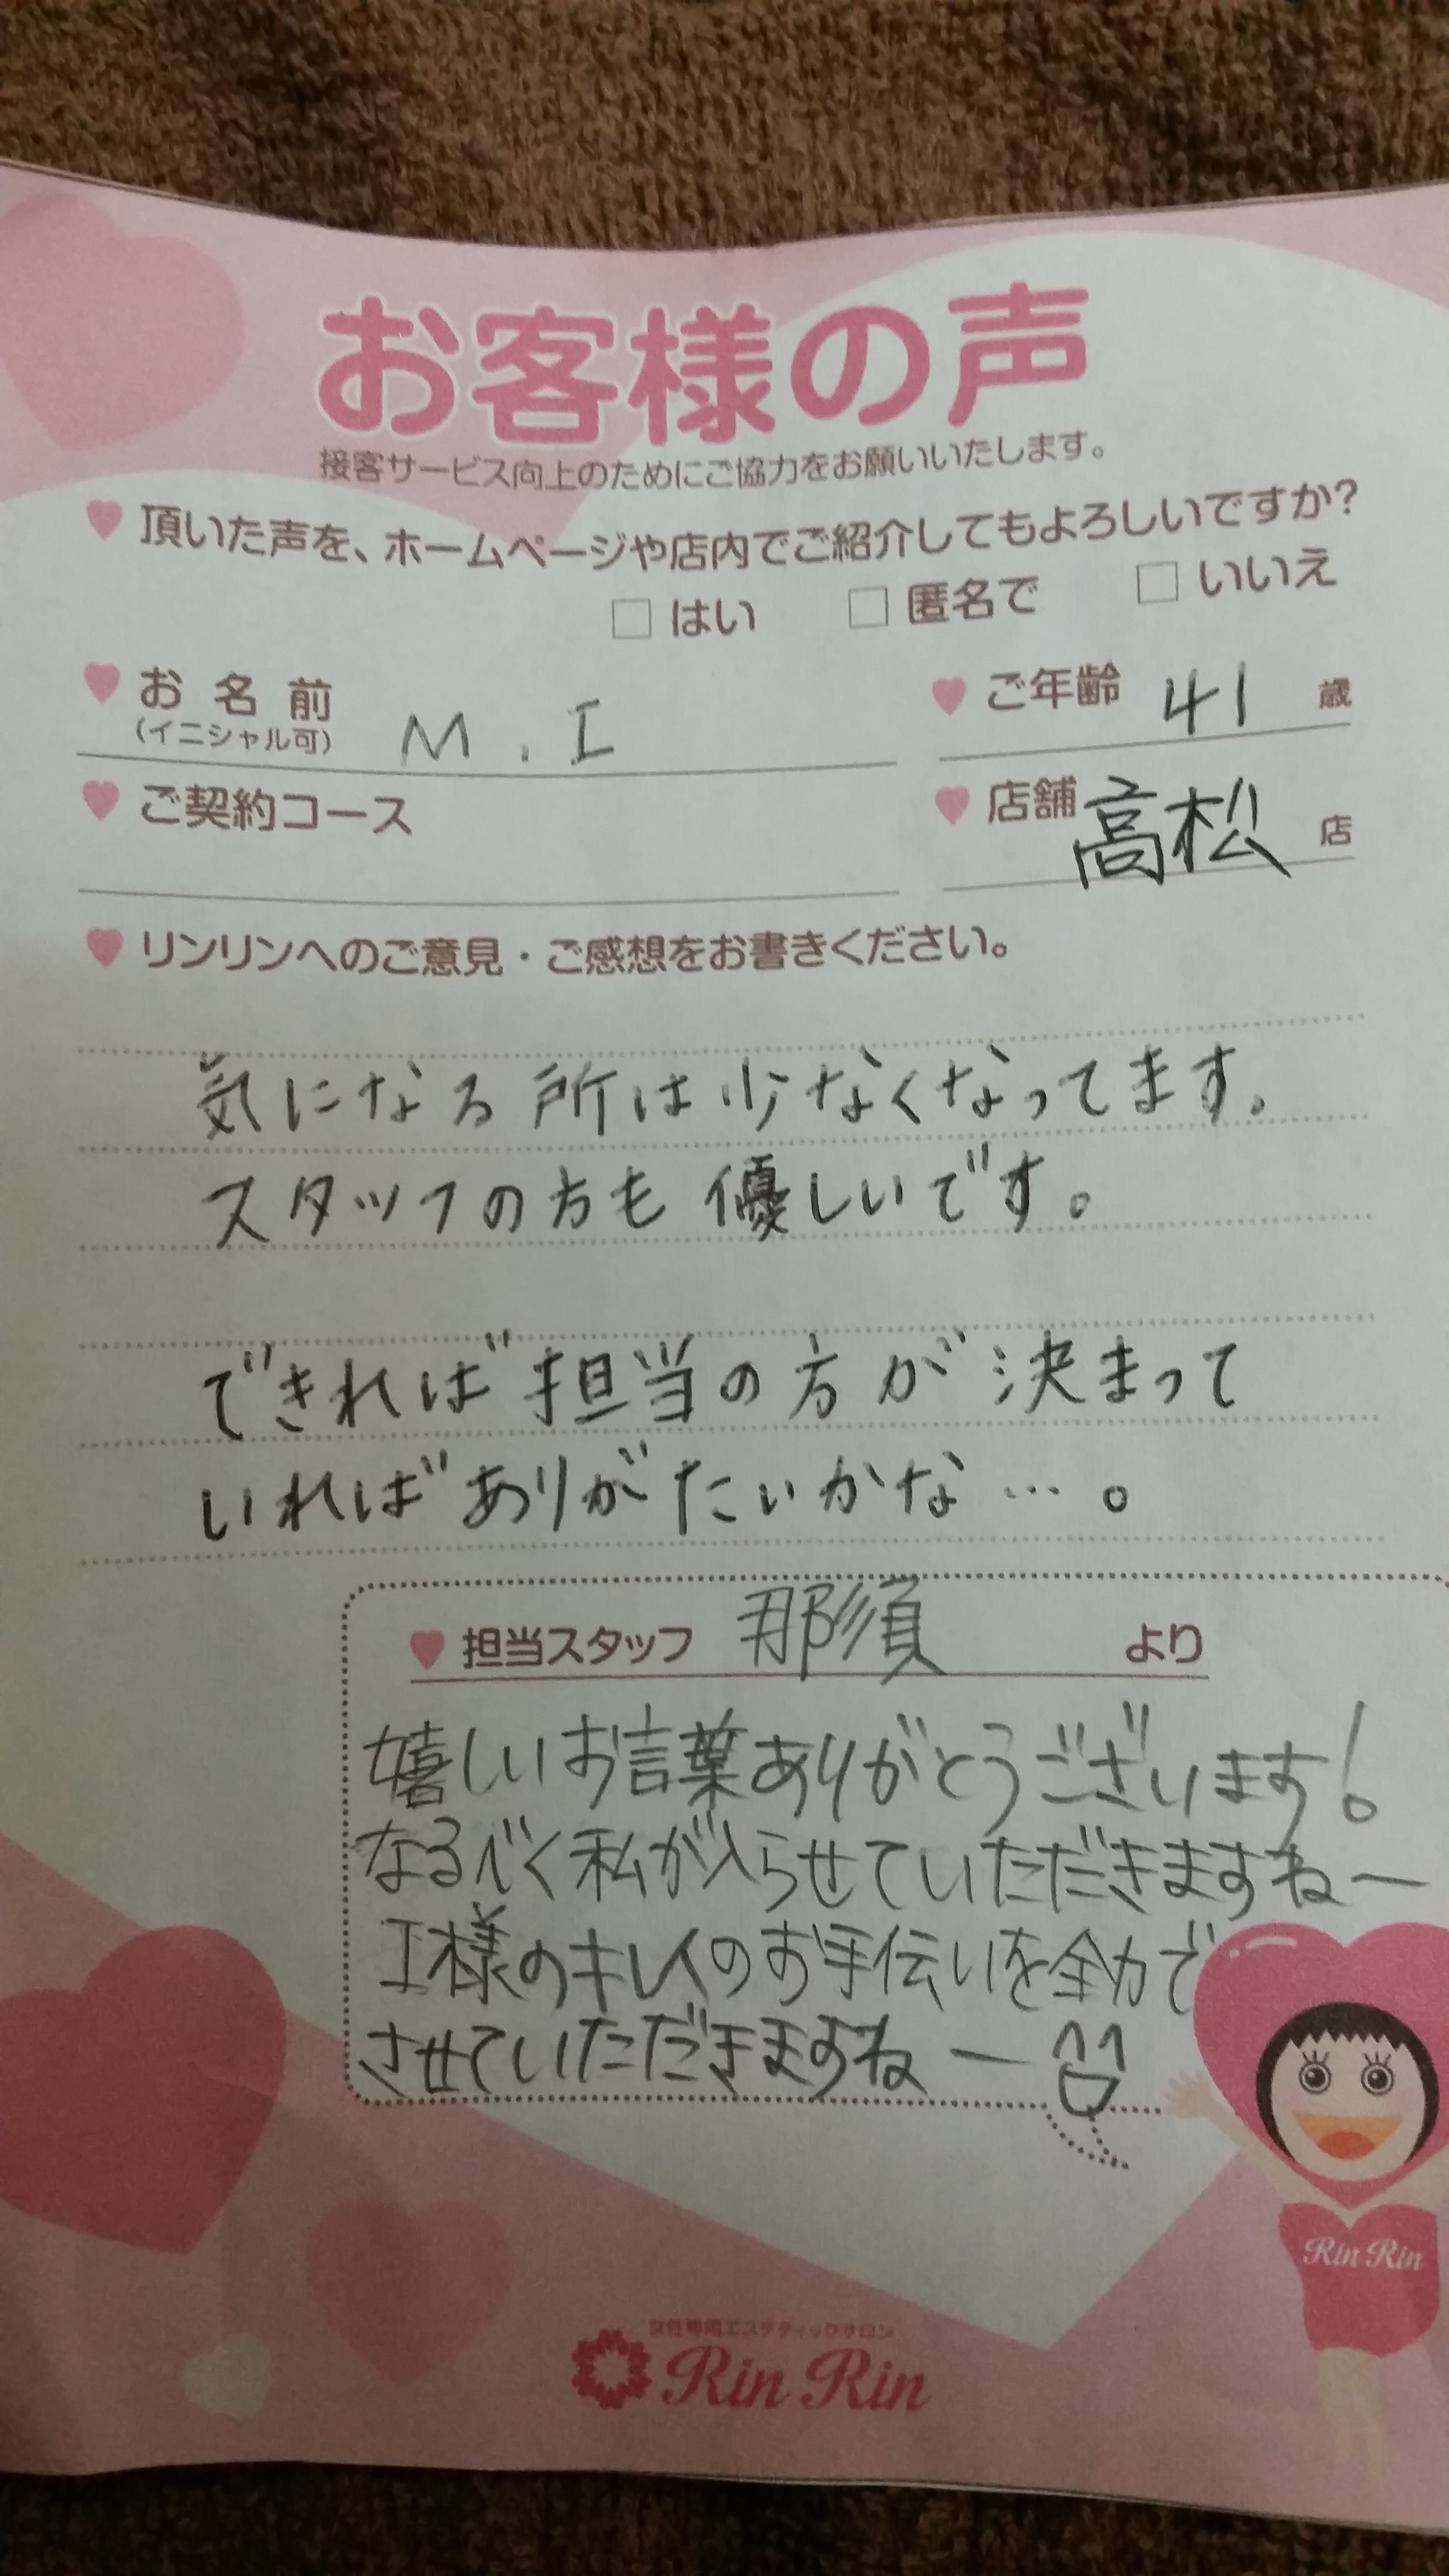 お客様の声
接客サービス向上のためにご協力をお願いいたします。
頂いた声を、ホームページや店内でご紹介してもよろしいですか?
□ はい □ 匿名で □ いいえ
お名前 M.I ご年齢 41 歳
(イニシャル可)
ご契約コース 店舗 高松 店
リンリンへのご意見・ご感想をお書きください。
気になる所は少なくなってます。
スタッフの方も優しいです。
できれば担当の方が決まって
いればありがたいかな…。
担当スタッフ 那須 より
嬉しいお言葉ありがとうございます!
なるべく私が入らせていただきますねー
I様のキレイのお手伝いを全力で
させていただきますねー
Rin Rin
女性専用エステティックサロン
Rin Rin